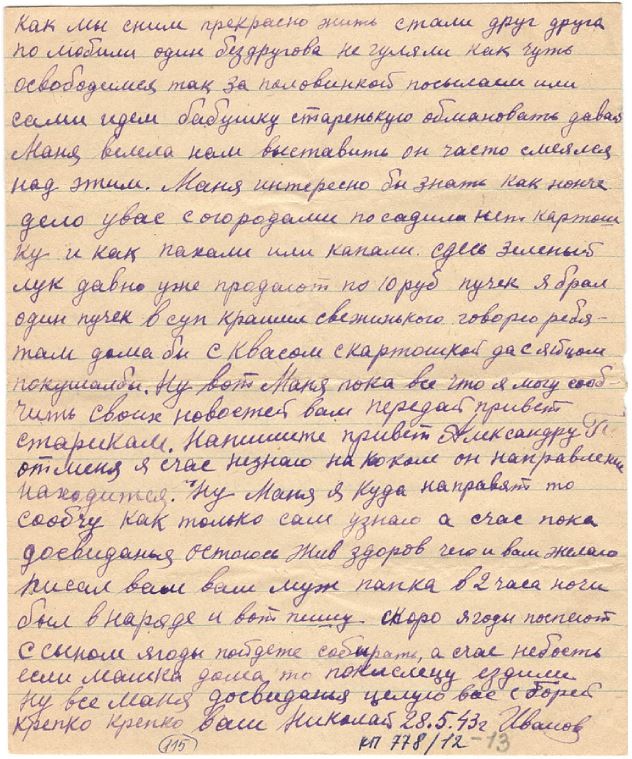 Как мы сним прекрасно жить стали друг друга
полюбили один бездругова не гуляли как чуть
освободимся так за половинкой посылаем или
сами идем бабушку старенькую обмановать давай
Маня велела нам выставить он часто смеялся
над этим. Маня интересно бы знать как нонче
дело увас согородами посадили нет картош
ку и как пахали или капали. сдесь зеленый
лук давно уже продают по 10 руб пучек я брал
один пучек в суп крашим свежинького говорю ребя-
там дома бы с квасом скартошкой дасяйцом
покушалбы. Ну вот Маня пока все что я могу сооб-
чить своих новостей вам передай привет
старикам. Напишите привет Александру
отменя я счас незнаю накаком он направлении
находится. Ну Маня я куда направят то
сообчу как только сам узнаю а счас пока
досвиданья остоюсь жив здоров чего и вам желаю
писал вам вам муж папка в 2 часа ночи
был внаряде и вот пишу. скоро ягоды поспеют
с сыном ягоды пойдете собирать, а счас небость
если машка дома то покислецу ездили
Ну все Маня досвиданья целую вас с Борей
крепко крепко ваш Николай 28.5.43г Иванов
115
КП 778/12-13